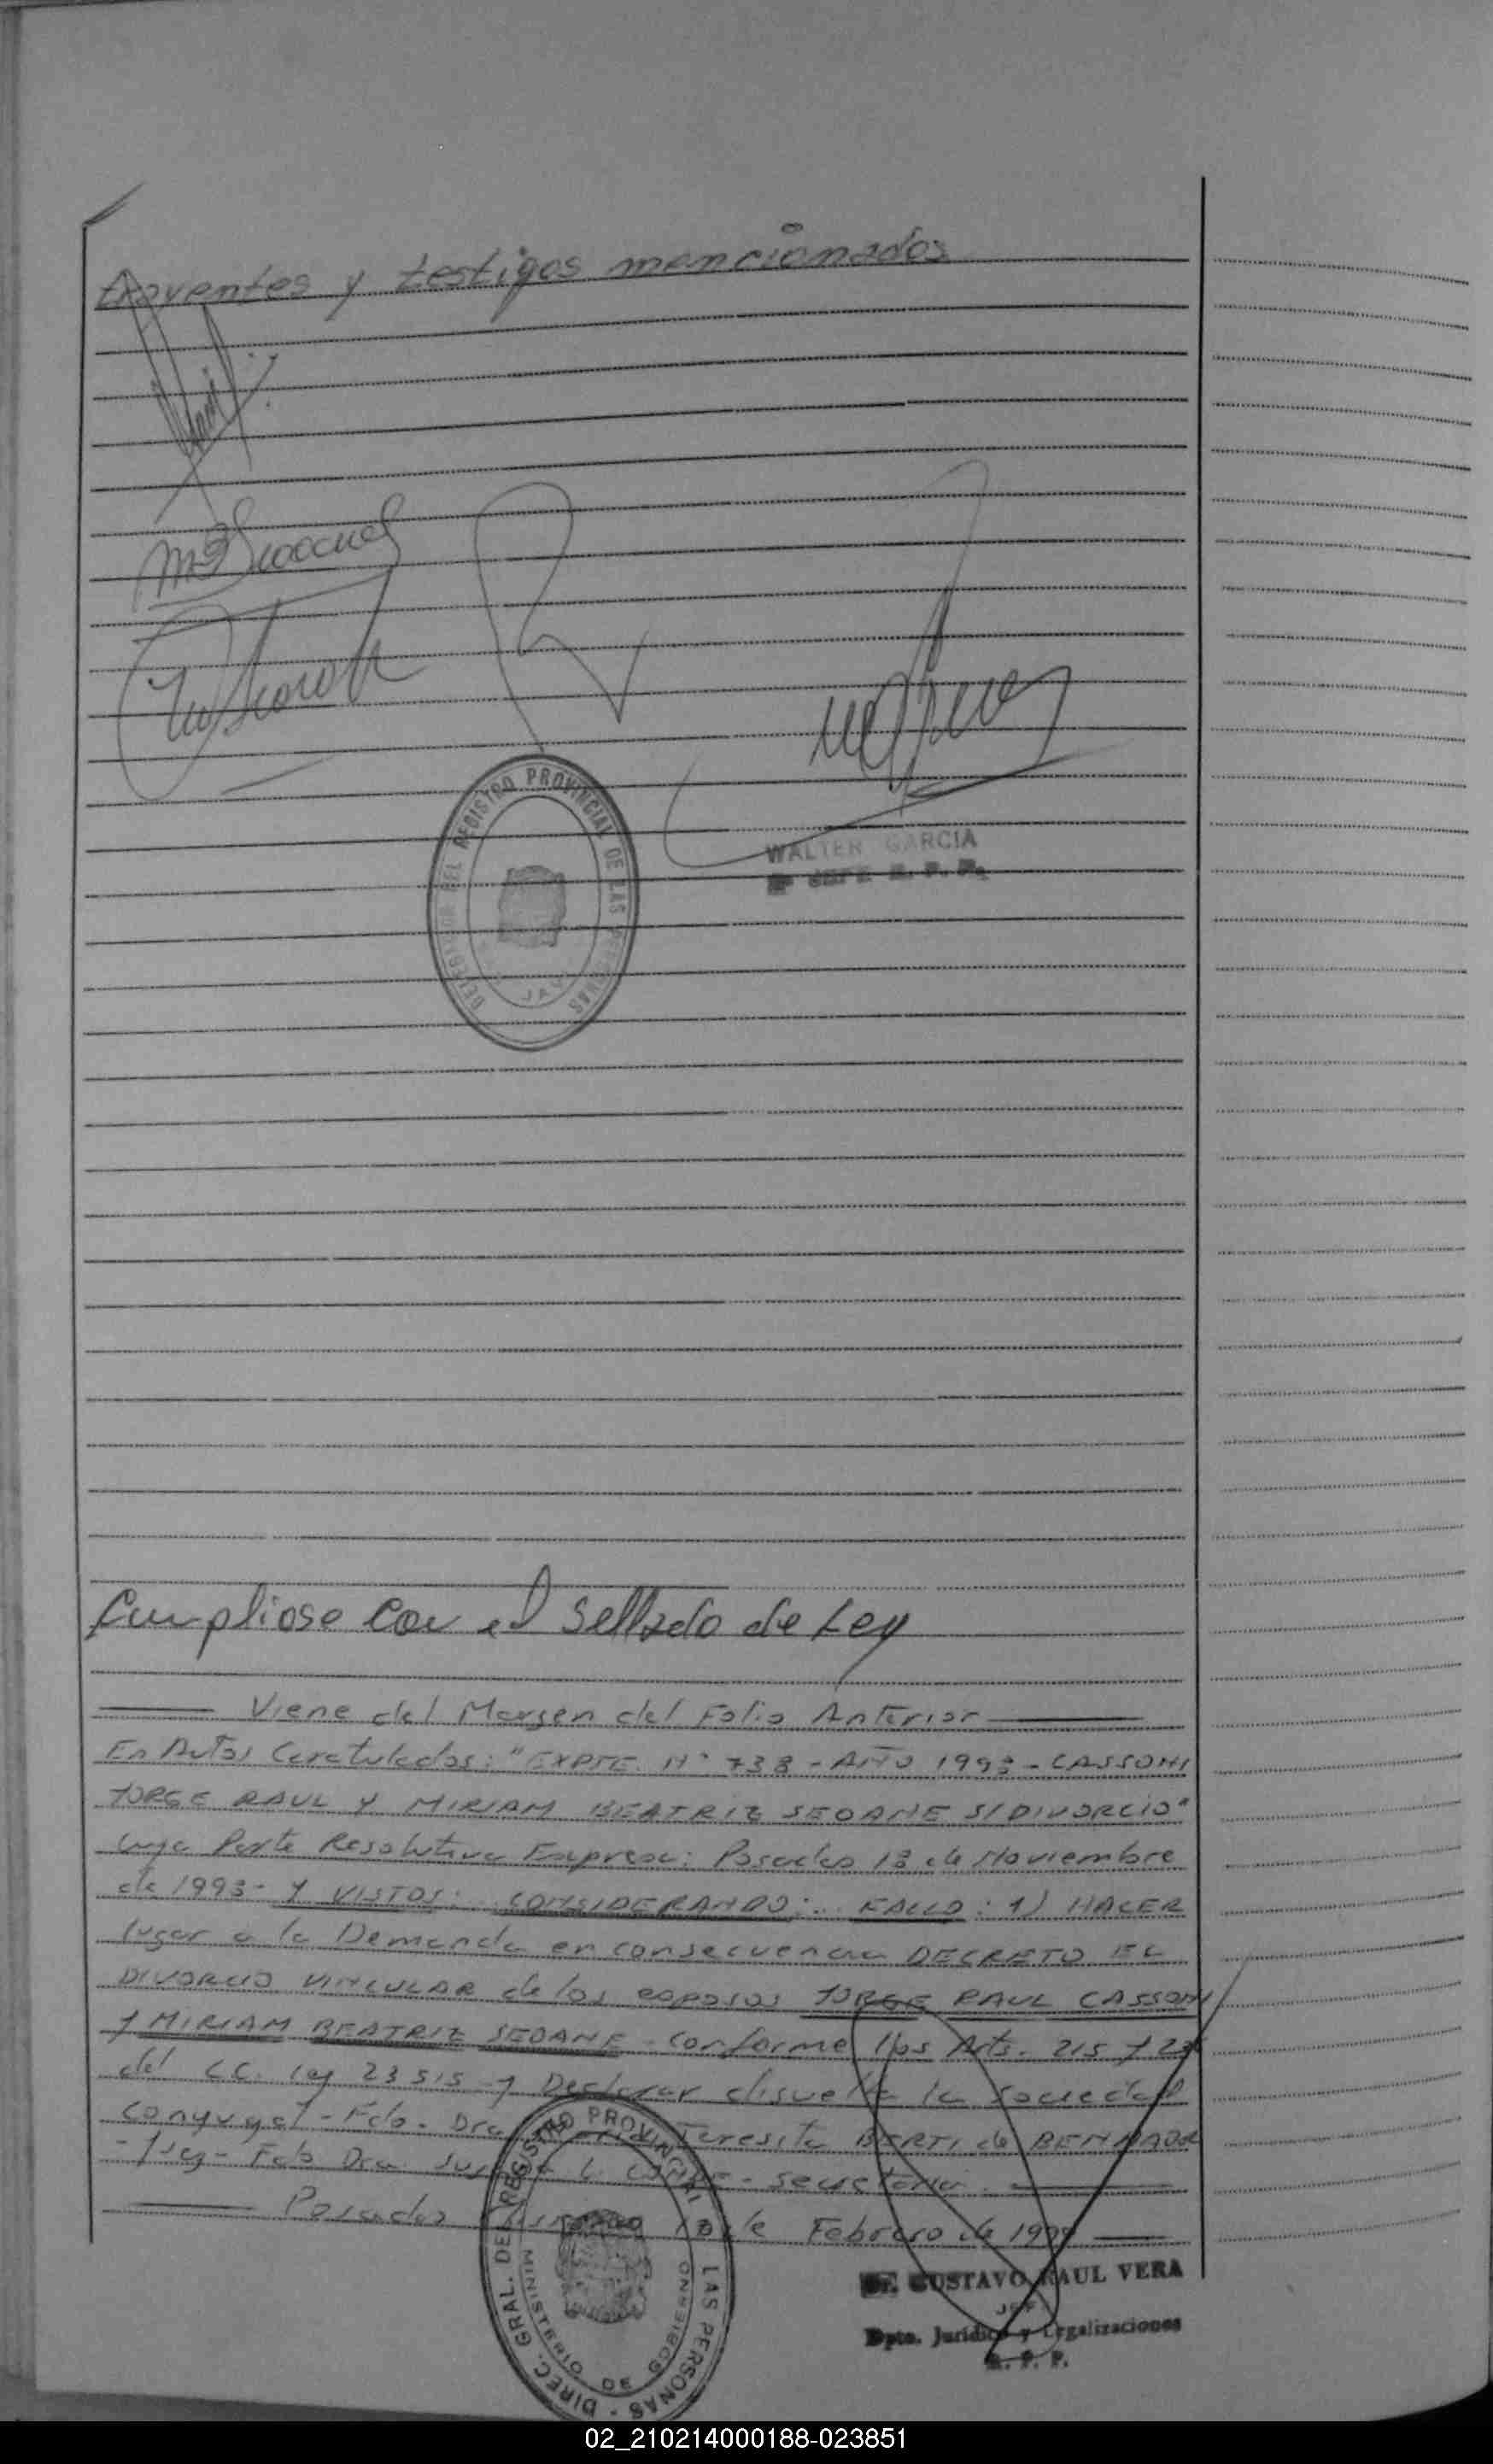 trayentes y testigos mencionados
REGISTRO PROVINCIAL DE LAS
WALTER GARCIA
JEFE R. P. P.
Cumpliose Con el Sellado de Ley
Viene del Margen del Folio Anterior
En Autos Caratulados: "EXPTE. N° 738 - AÑO 1993 - CASSONI
JORGE RAUL Y MIRIAM BEATRIZ SEOANE S/DIVORCIO"
cuya Parte Resolutiva Expresa: Posadas 18 de Noviembre
de 1993 - Y VISTOS: CONSIDERANDO: FALLO: 1) HACER
lugar a la Demanda en consecuencia DECRETO EL
DIVORCIO VINCULAR de los esposos JORGE RAUL CASSONI
Y MIRIAM BEATRIZ SEOANE - conforme los Arts. 215 y
del CC. ley 23515 - y Declarar disuelta la Sociedad
conyugal - Fdo. Dra. Teresita BERTI de
- Fdo Dra. - secretaria.
Posadas Misiones de Febrero de
DIREC. GRAL. DEL REGISTRO PROVINCIAL LAS PERSONAS
MINISTERIO DE GOBIERNO
GUSTAVO RAUL VERA
JEFE
Dpto. Juridico y Legalizaciones
R. P. P.
02_210214000188-023851